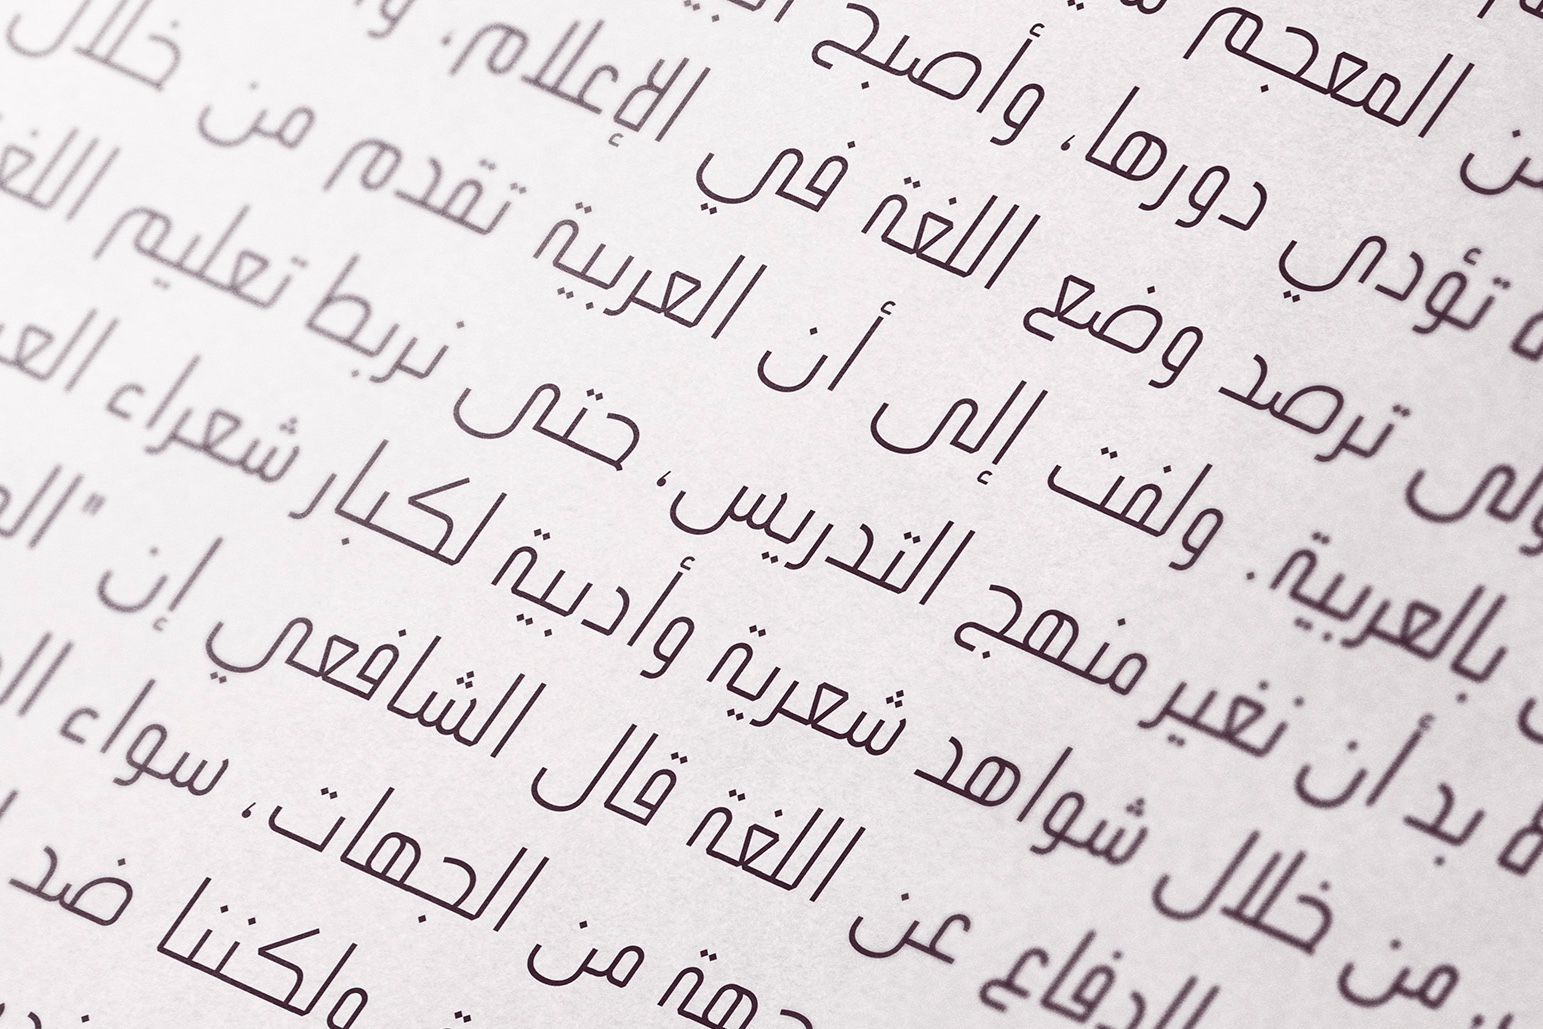 المعجم
تؤدي دورها، وأصبح
ترصد وضع اللغة في الإعلام،
بالعربية. ولفت إلى أن العربية تقدم من خلال
لا بد أن نغير منهج التدريس، حتى نربط تعليم
من خلال شواهد شعرية وأدبية لكبار شعراء
الدفاع عن اللغة قال الشافعي إن "
من الجهات، سواء
ولكننا ضد